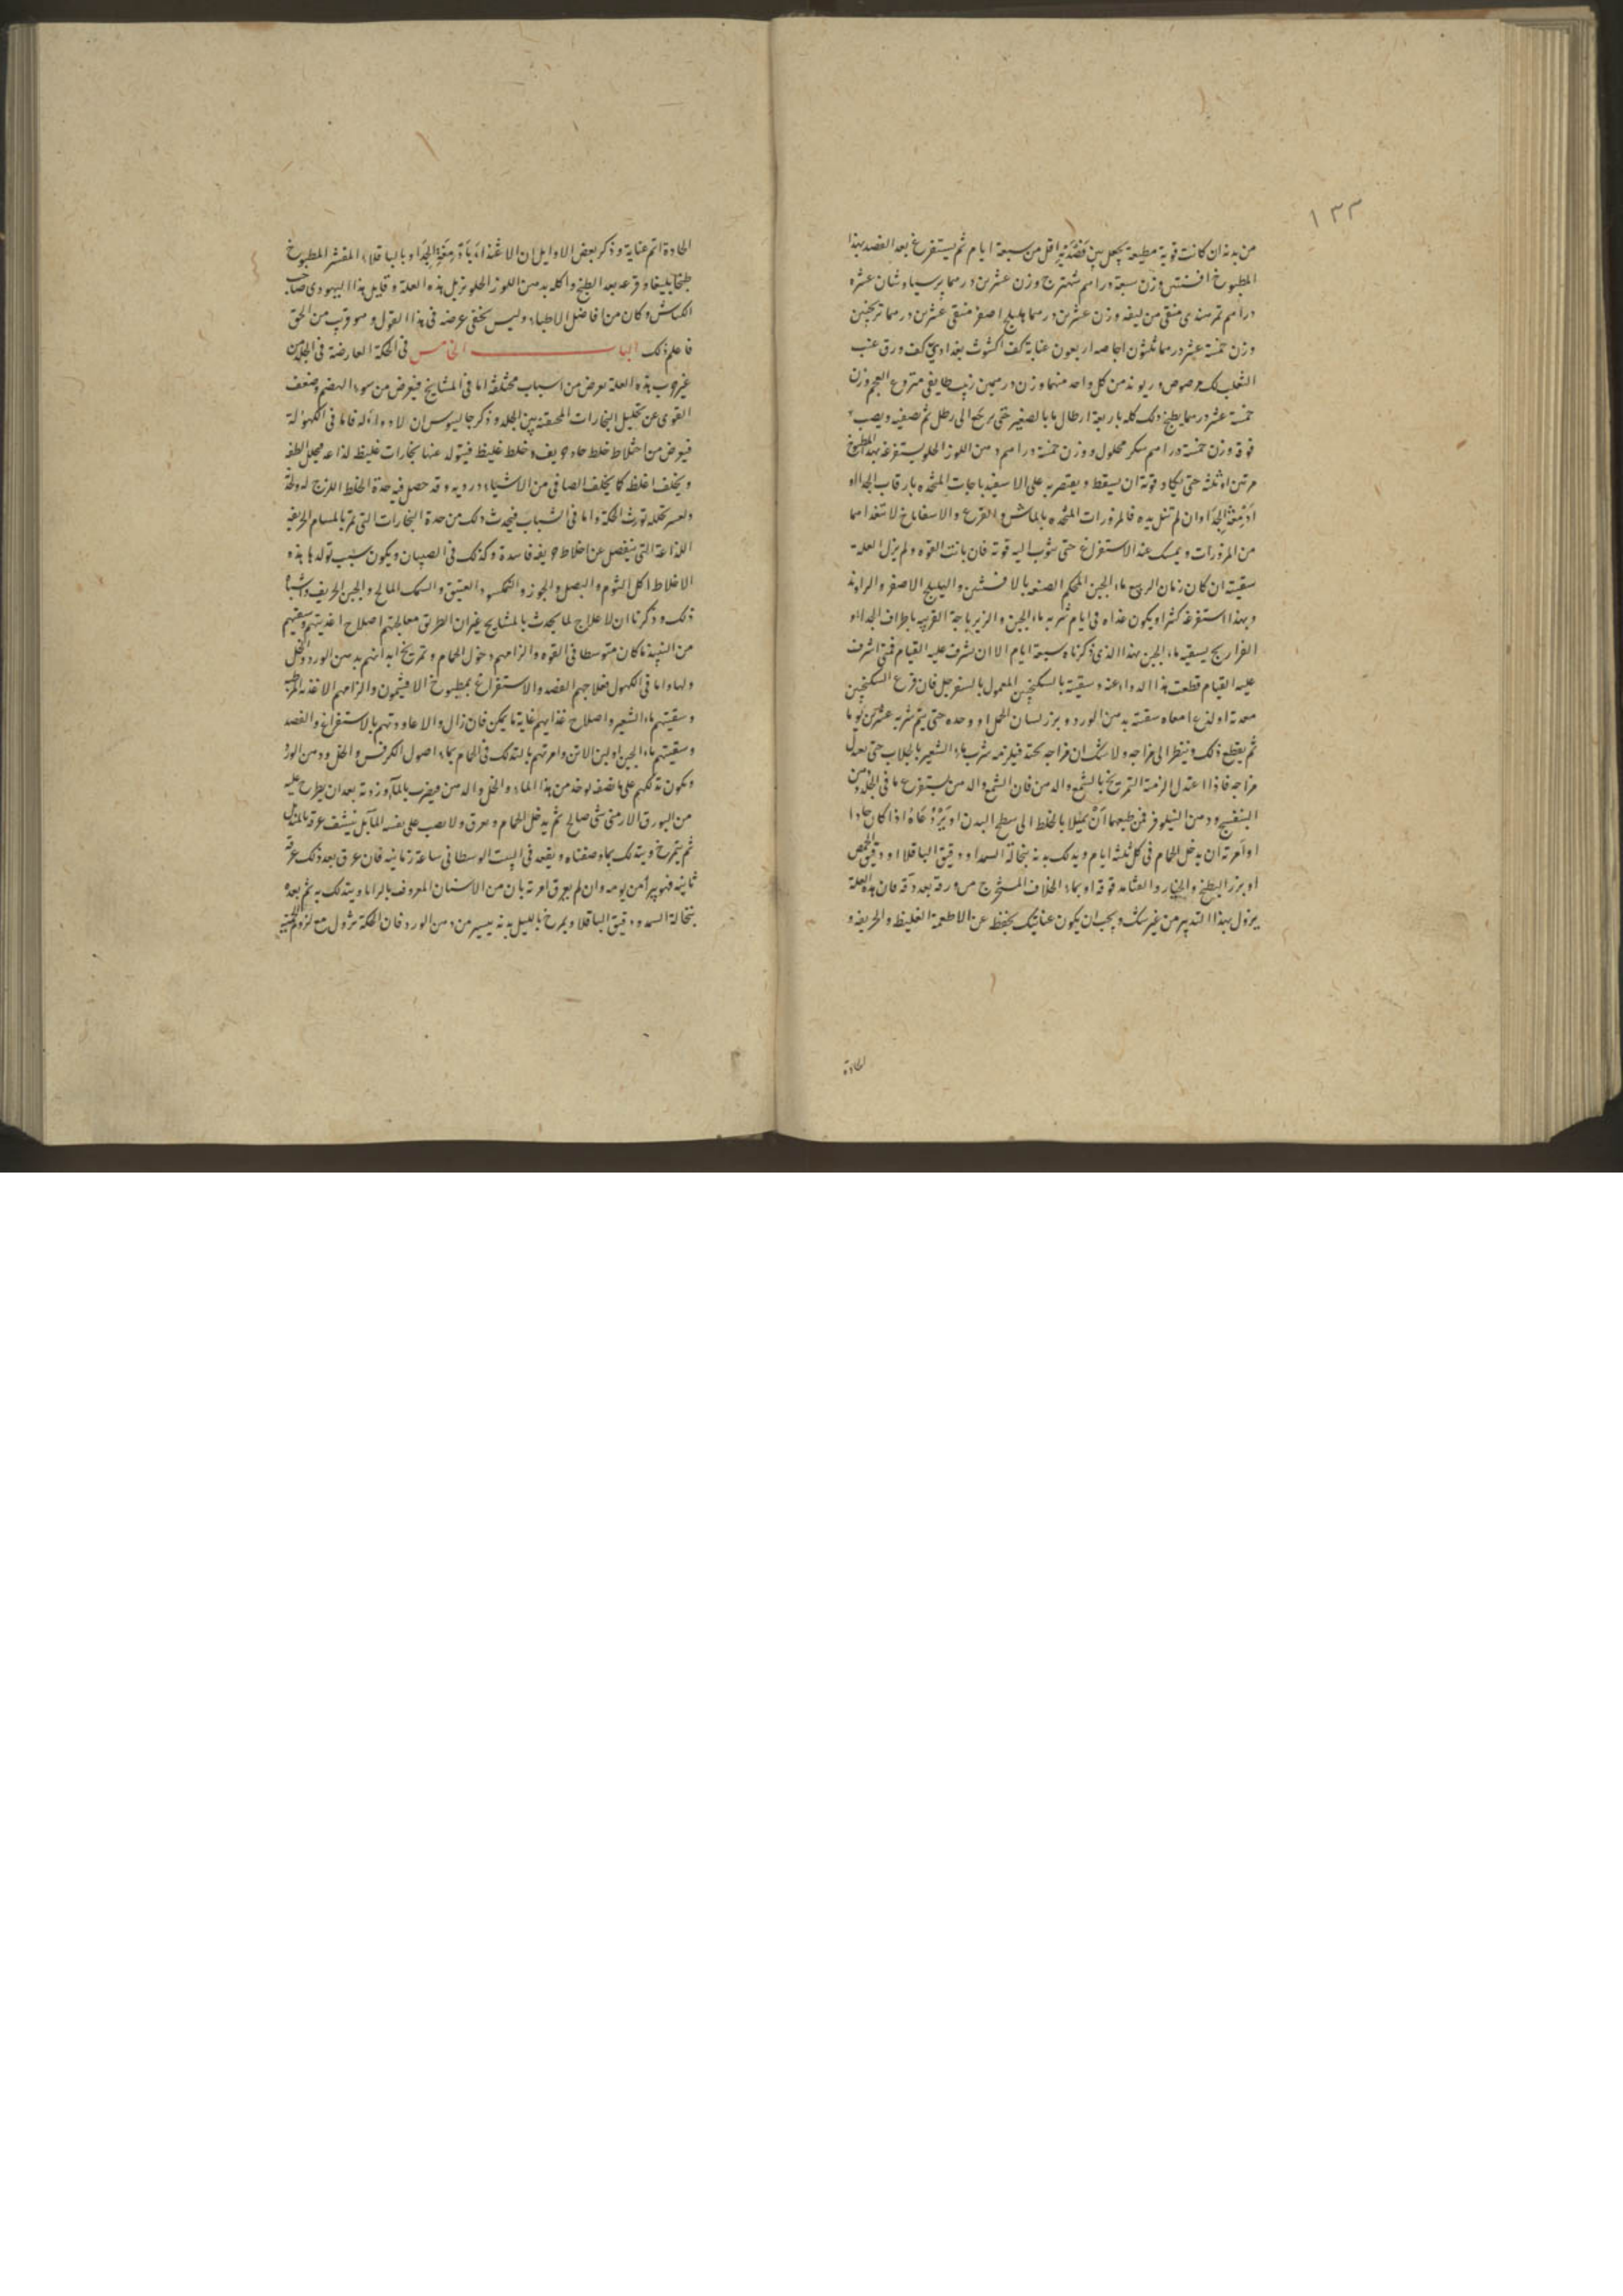 ١٣٣
من بدنه ان كانت قوية مطيعة يجعل بين فصدتيه اقل من سبعة ايام ثم يستفرغ بعد الفصد بهذا
المطبوخ افسنتين وزن سبعة دراهم شهترج وزن عشرين درهما برسياوشان عشرة
دراهم تمر هندى منقى من ليفه وزن عشرين درهما هليلج اصفر منقى عشرين درهما ترنجبين
وزن خمسة عشر درهما ثلثون اجاصه اربعون عنابة كف اكشوث بغدادى كف ورق عنب
الثعلب لك مرصوص و ريوند من كل واحد منهما وزن درهمين زبيب طايفى منزوع العجم وزن
خمسة عشر درهما يطبخ ذلك كله باربعة ارطال ما بالصغير حتى يرجع الى رطل ثم يصفيه ويصب
فوقه وزن خمسة دراهم سكر محلول و وزن خمسة دراهم دهن اللوز الحلو يستفرغه بهذا المطبوخ
مرتين او ثلثة حتى يكاد قوته ان يسقط و يقتصر به على الاسفيدباجات المتخذه بارقاب الجداء او
ادمغة الجداء وان لم تنل يده فالمزورات المتخذه بالماش والقرع والاسفاناخ لا تتعداهما
من المزورات و يمسك عنه الاستفراغ حتى يثوب اليه قوته فان بانت القوه ولم يزل العلة
سقيته ان كان زمان الربيع ماء الجبن المحكم الصنعه بالافسنتين والهليلج الاصفر والراوند
وبهذا استفرغه كثيرا ويكون غذاه فى ايام شربه ماء الجبن والزيرباجة القريبه باطراف الجداء او
الفراريج يسقيه ماء الجبن بهذا الذى ذكرناه سبعة ايام الا ان يشرف عليه القيام فمتى اشرف
عليه القيام قطعت هذا الدواء عنه و سقيته بالسكنجبين المعمول بالسفرجل فان قرع السكنجبين
معدته او لذع امعاه سقيته بدهن الورد و بزر لسان الحمل او وحده حتى يتم شربه عشرين يوما
ثم يقطع ذلك وينظر الى مزاجه ولا شك ان مزاجه يحتد فيلزمه شرب ماء الشعير بالجلاب حتى يعدل
مزاجه فاذا اعتدل الزمته التمريخ بالشمع والدهن فان الشمع والدهن يستفرغ ما فى الجلد دهن
البنفسج و دهن النيلوفر فمن طبعهما ان يميلا بالخلط الى سطح البدن او يردعاه اذا كان حادا
او امرته ان يدخل الحمام فى كل ثلثة ايام ويدلك بدنه بنخالة السمدا و دقيق الباقلا او دقيق الحمص
او بزر البطيخ والخيار والقثا مدقوقة او بماء الخلاف المستخرج من ورقه بعد دقه فان هذه العلة
يزول بهذا التدبير من غير شك ويجب ان يكون عنايتك بحفظه عن الاطعمة الغليظه والحريفه و
الحادة
الحادة اتم عناية و ذكر بعض الاوايل ان الاغتذاء بادمغة الجداء و بالباقلاء المقشر المطبوخ
طبخا بليغا و قرعه بعد الطبخ واكله بدهن اللوز الحلو يزيل هذه العلة و قايل هذا اليهودى صاحب
الكناش وكان من افاضل الاطباء وليس يخفى غرضه فى هذا القول و هو قريب من الحق
فاعلم ذلك الباب الخامس فى الحكة العارضة فى الجلد من
غير جرب هذه العلة يعرض من اسباب مختلفة اما فى المشايخ فيعرض من سوء الهضم وضعف
القوى عن تحليل البخارات المحتقنه بين الجلد و ذكر جالينوس ان لا دواء له فاما فى الكهولة
فيعرض من اختلاط خلط حاد حريف وخلط غليظ فيتولد عنهما بخارات غليظه لذاعه يحلل الطفه
ويخلف اغلظه كما يخلف الصافى من الاشياء درديه و قد حصل فيه حدة الخلط اللزج لذوعة
ولعسر تحلله تورث الحكة واما فى الشباب فيحدث ذلك من حدة البخارات التى تمر بالمسام الحريفه
اللذاعة التى ينفصل عن اخلاط حريفه فاسدة وكذلك فى الصبيان ويكون سبب تولدها هذه
الاخلاط اكل الثوم والبصل والجوز والنمكسود العتيق والسمك المالح والجبن الحريف واشباه
ذلك و ذكرنا ان لا علاج لما يحدث بالمشايخ غير ان الطريق معالجتهم اصلاح اغذيتهم وسقيهم
من النبيذ ما كان متوسطا فى القوه والزامهم دخول الحمام و تمريخ ابدانهم بدهن الورد والخل
ولها واما فى الكهول فعلاجهم الفصد والاستفراغ بمطبوخ الافيتمون والزامهم الاغذيه المرطبه
وسقيتهم ماء الشعير واصلاح غذايهم غاية ما يمكن فان زال والا عاودتهم بالاستفراغ والفصد
وسقيتهم ماء الجبن او لبن الاتن وامرتهم بالتدلك فى الحمام بماء اصول الكرفس والخل ودهن الورد
ويكون تدلكهم على ما نصفه يوخذ من هذا الماء والخل والدهن فيضرب بالماورد ته بعد ان يطرح عليه
من البورق الارمنى شى صالح ثم يدخل الحمام ويعرق ولا يصب على نفسه الماء بل ينشف عرقه بالمنديل
ثم يتمرخ و يتدلك بما وصفناه ويقعد فى البيت الوسطانى ساعة زمانيه فان عرق بعد ذلك عرقة
ثانية فهو يبرأ من يومه وان لم يعرق امرته بان من الاشنان المعروف بالرانا ويتدلك به ثم بعده
بنخالة السمد و دقيق الباقلا ويمرخ بالليل بدنه بيسير من دهن الورد فان الحكة تزول مع لزوم الحمية